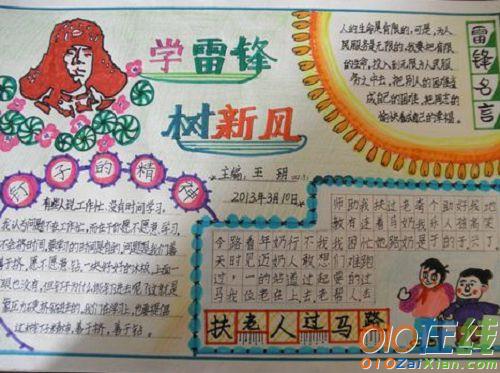 学雷锋
树新风
主编：王玥
2013年3月10日
雷锋名言
人的生命是有限的，可是，为人
民服务是无限的，我要把有限
的生命，投入到无限为人民服
务之中去。把别人的困难当
成自己的困难，把同志的
愉快看成自己的幸福。
钉子的精神
有些人说工作忙、没有时间学习。
我认为问题不在工作忙，而在于你愿不愿意学习，
会不会挤时间。要学习的时间是有的，问题是我们善不
善于挤，愿不愿意钻。一块好好的木板，上面一
眼也没有，但钉子为什么能钉进去呢？这就是
靠压力硬挤硬钻进去的。我们在学习上，也要提倡
这种钉子精神，善于挤，善于钻。
扶老人过马路
今天过马
路时，我
看见一位
年迈的老
奶奶站在
行人道上
不敢过去
010在线
010ZaiXian.com